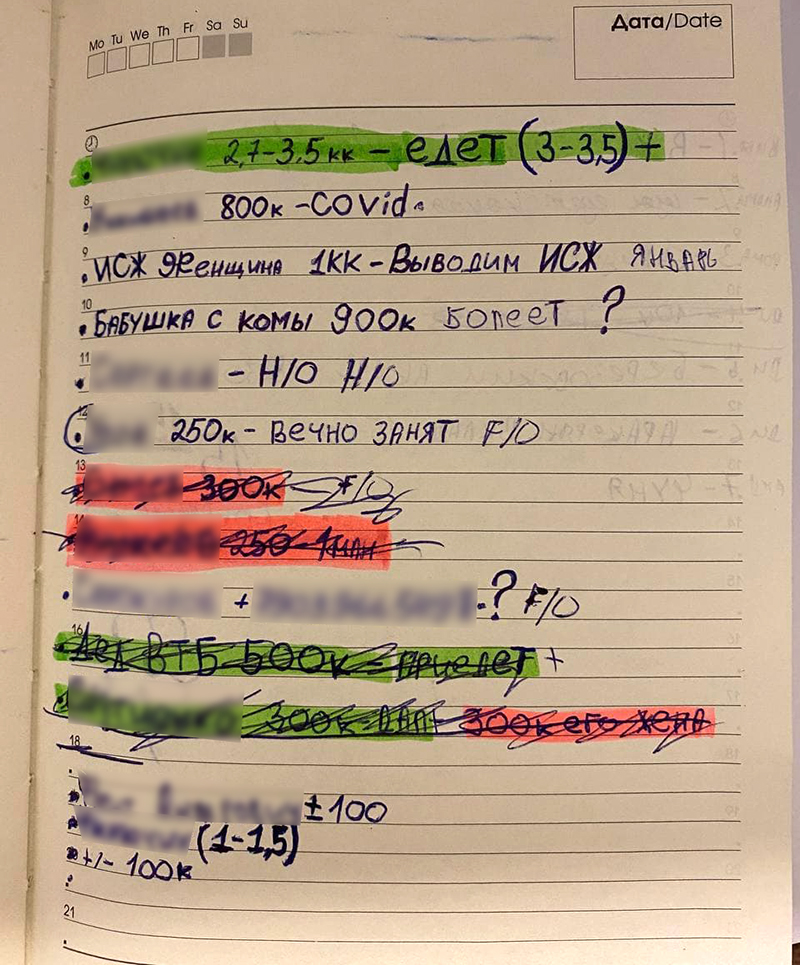 Mo Tu We Th Fr Sa Su
Дата/Date
2,7-3,5 кк - едет (3-3,5) +
8
800к - Covid.
9
ИСЖ Женщина 1кк - Выводим ИСЖ январь
10
Бабушка с комы 900к болеет ?
11
- Н/О Н/О
12
250к - вечно занят F/O
13
300к - F/O
14
250-1 млн
15
+ ? F/O
16
Дед ВТБ 500к - приедет +
17
300к - дал - 300к его жена
18
±100
(1-1,5)
+/- 100к
21